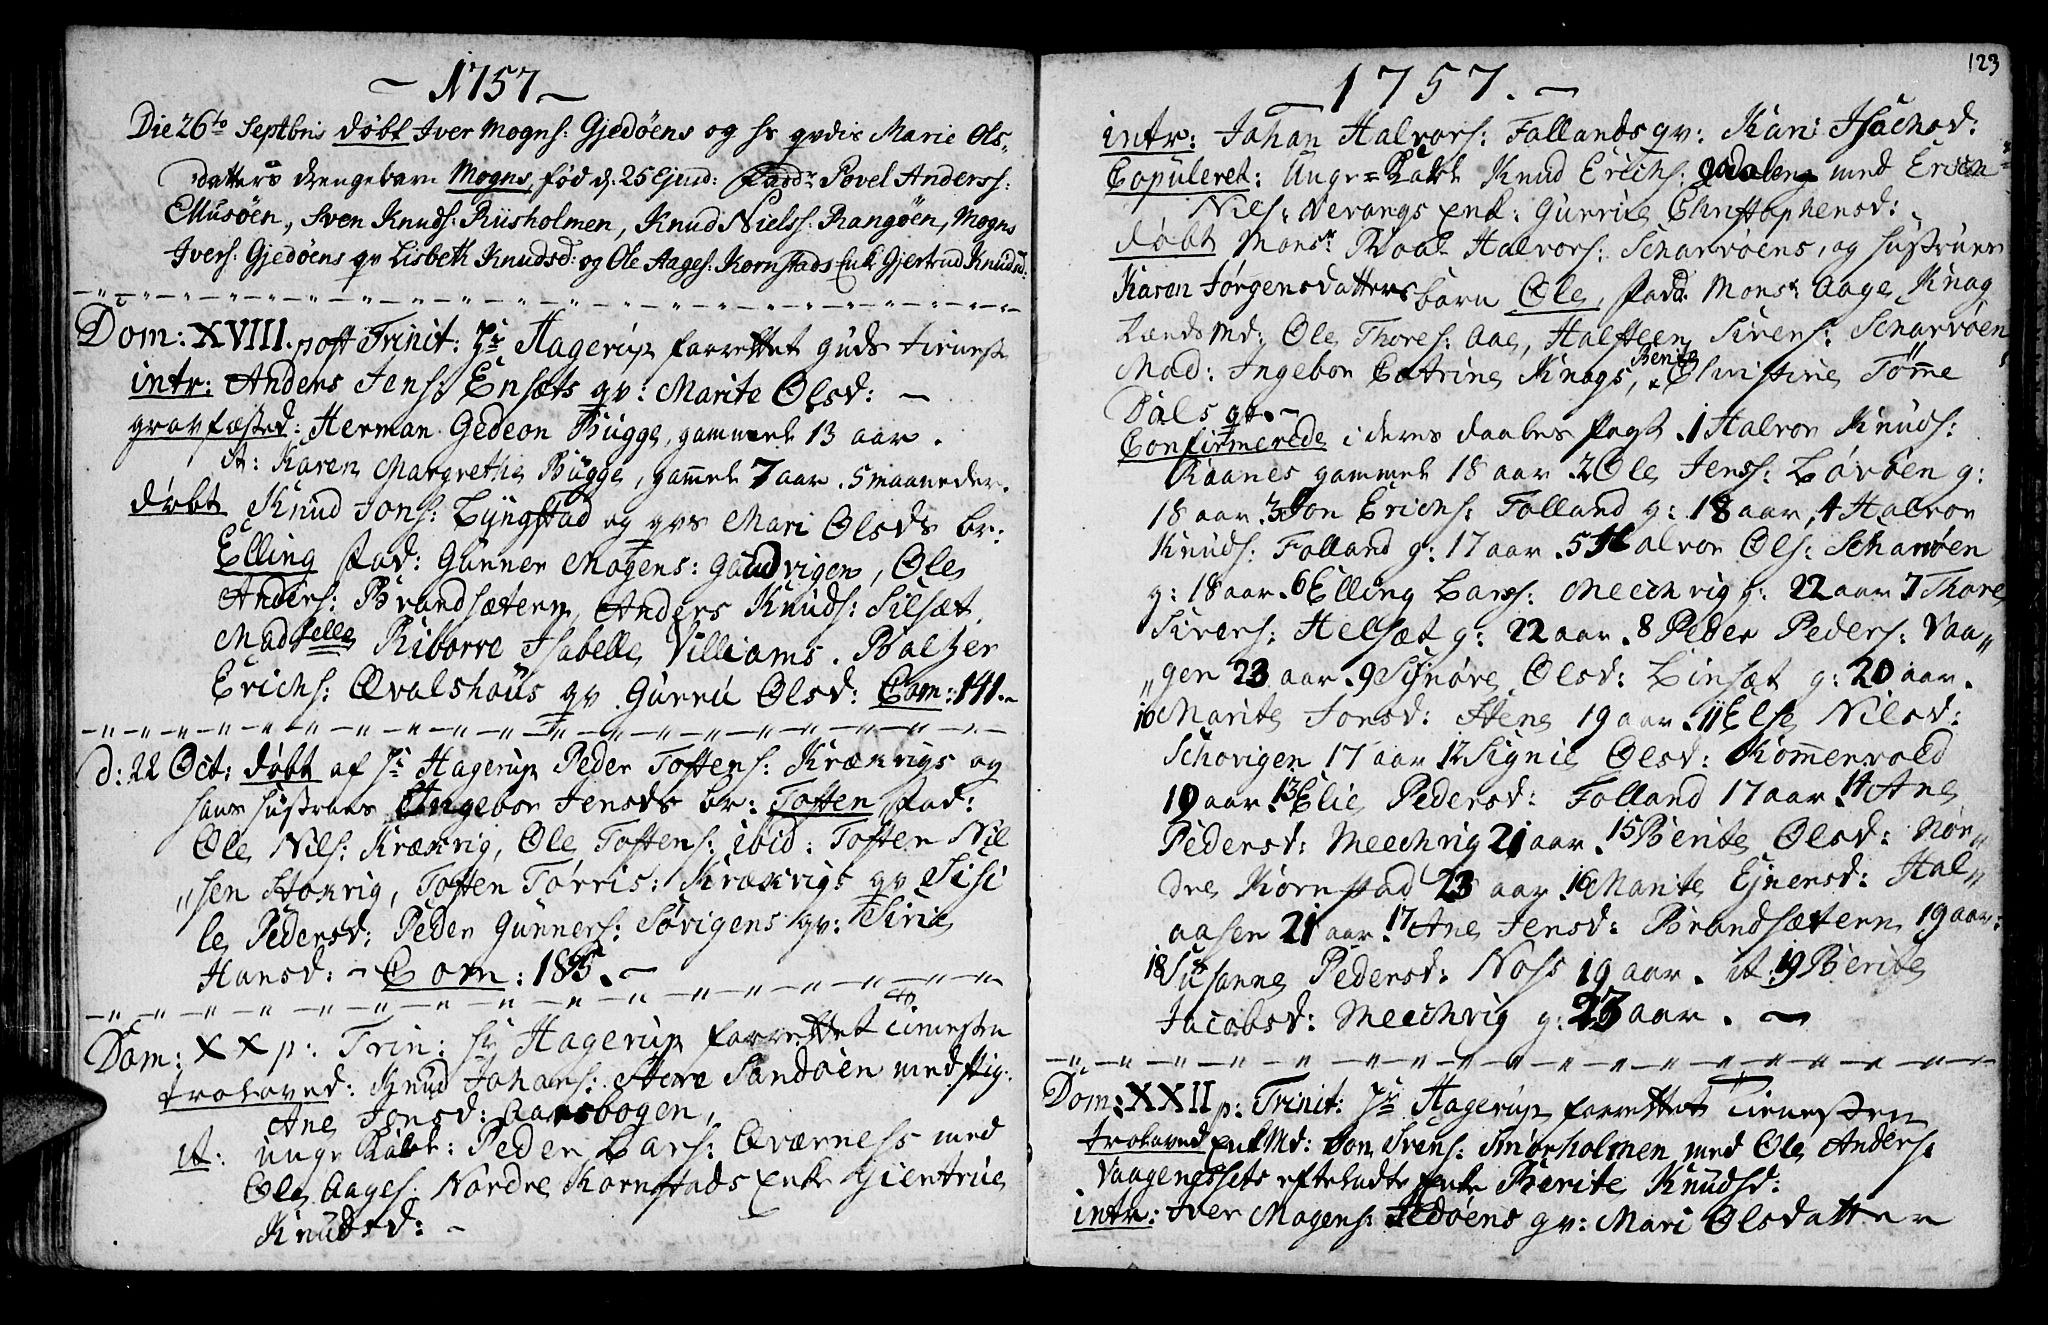 ~ 1757 ~
Die 26to Septbris døbt Iver Mogns: Gjedøens og hs qvdis Marie Ols-
datters drengebarn Mogns, fød d. 25 Ejusd: Faddr Povel Anderss:
Ellusøen, Sven Knuds: Riisholmen, Knud Nielss: Rangøen, Mogns
Ivers: Gjedøens qv Lisbeth Knudsd: og Ole Aages: Kornstads Enk Gjertrud Knudsd:
Dom: XVIII. post Trinit: Hr Hagerup forrettet Guds tieneste
intr: Anders Jens: Ensæts qv: Marite Olsd: ~
gravfæsted: Herman Gedeon Bugge, gammel 13 aar.
it: Karen Margrethe Bügge, gammel 7 aar. 5 maaneder.
døbt Knud Jons: Lyngstad og qvs Mari Olsds br:
Elling fad: Gunner Mogens: Gaudvigen, Ole
Anders: Brandsætern, Anders Knuds: Silsæt.
Madselle Riborre Isabelle Villiams. Baltzer
Erichs: Qvalshaüs qv. Gurru Olsd: Com: 141.~
d: 22 Oct: døbt af Hr Hagerup Peder Tostens: Krækvigs og
hans hustrues Ingebor Jensds br: Tosten fad:
Ole Nils: Krækvig, Ole Tostens: ibid: Tosten Nil
"sen Stokvig, Tosten Tørris: Krækvigs qv Sisi
le Pedersd: Peder Gunners: Sørvigens qv: Sirie
Hansd: ~ Com: 185.~
Dom: XX p: Trin: Hr Hagerup forrettet Tienesten
troloved: Knud Johans: Store Sandøen med pig:
Ane Jonsd: Aarsbogen,
it: unge Karl: Peder Lars: Qværness med
Ole Aages: Nordre Kornstads Enke Gientrue
Knudsd: ~
123
1757. ~
intr: Johan Halvors: Follands qv: Kari Isachsd:
Copuleret: Unge Karl Knud Erichs: med
Nils: Nerangs Enk: Gurrite Christophensd:
døbt Monsr Roal Halvors: Scharvøens, og hustrues
Karen Jørgensdatters barn Ole, fadd: Monsr Aage Knag
Lends Md: Ole Thores: Aae, Halsteen Sivers: Scharvøen
Mad: Ingebor Catrine Knags, Berite Christine Tømme
Dals qv.~
Confirmerede i deres daabes pagt. 1 Halvor Knuds:
Raanes gammel 18 aar 2 Ole Jenss: Lørøen g:
18 aar 3 Jon Erichs: Folland g: 18 aar, 4 Halvor
Knuds: Folland g: 17 aar. 5 Halvor Ols: Scharvøen
g: 18 aar. 6 Elling Larss: Meechvig g: 22 aar 7 Thore
Sivers: Helsæt g: 22 aar. 8 Peder Peders: Vaa"
"gen 23 aar. 9 Signøre Olsd: Linsæt g: 20 aar.
10 Marite Jonsd: Stene 19 aar. 11 Else Nilsd:
Schovigen 17 aar 12 Signie Olsd: Kommervold
19 aar. 13 Elie Pedersd: Folland 17 aar. 14 Ane
Pedersd: Meechvig 21 aar. 15 Berite Olsd: Nor"
dre Kornstad 23 aar. 16 Marite Ejnersd: Hal"
aasen 21 aar. 17 Ane Jensd: Brandsætern 19 aar:
18 Susanne Pedersd: Noss 19 aar. it: 19 Berite
Jacobsd: Meechvig g: 23 aar. ~
Dom: XXII p: Trinit: Hr Hagerup forrettet Tienesten
troloved Enk Md: Jon Svens: Smørholmen med Ole Anders:
Vaagenessets efterladte Enke Berite Knudsd:
intr: Iver Mogens: Jedøens qv: Mari Olsdatter